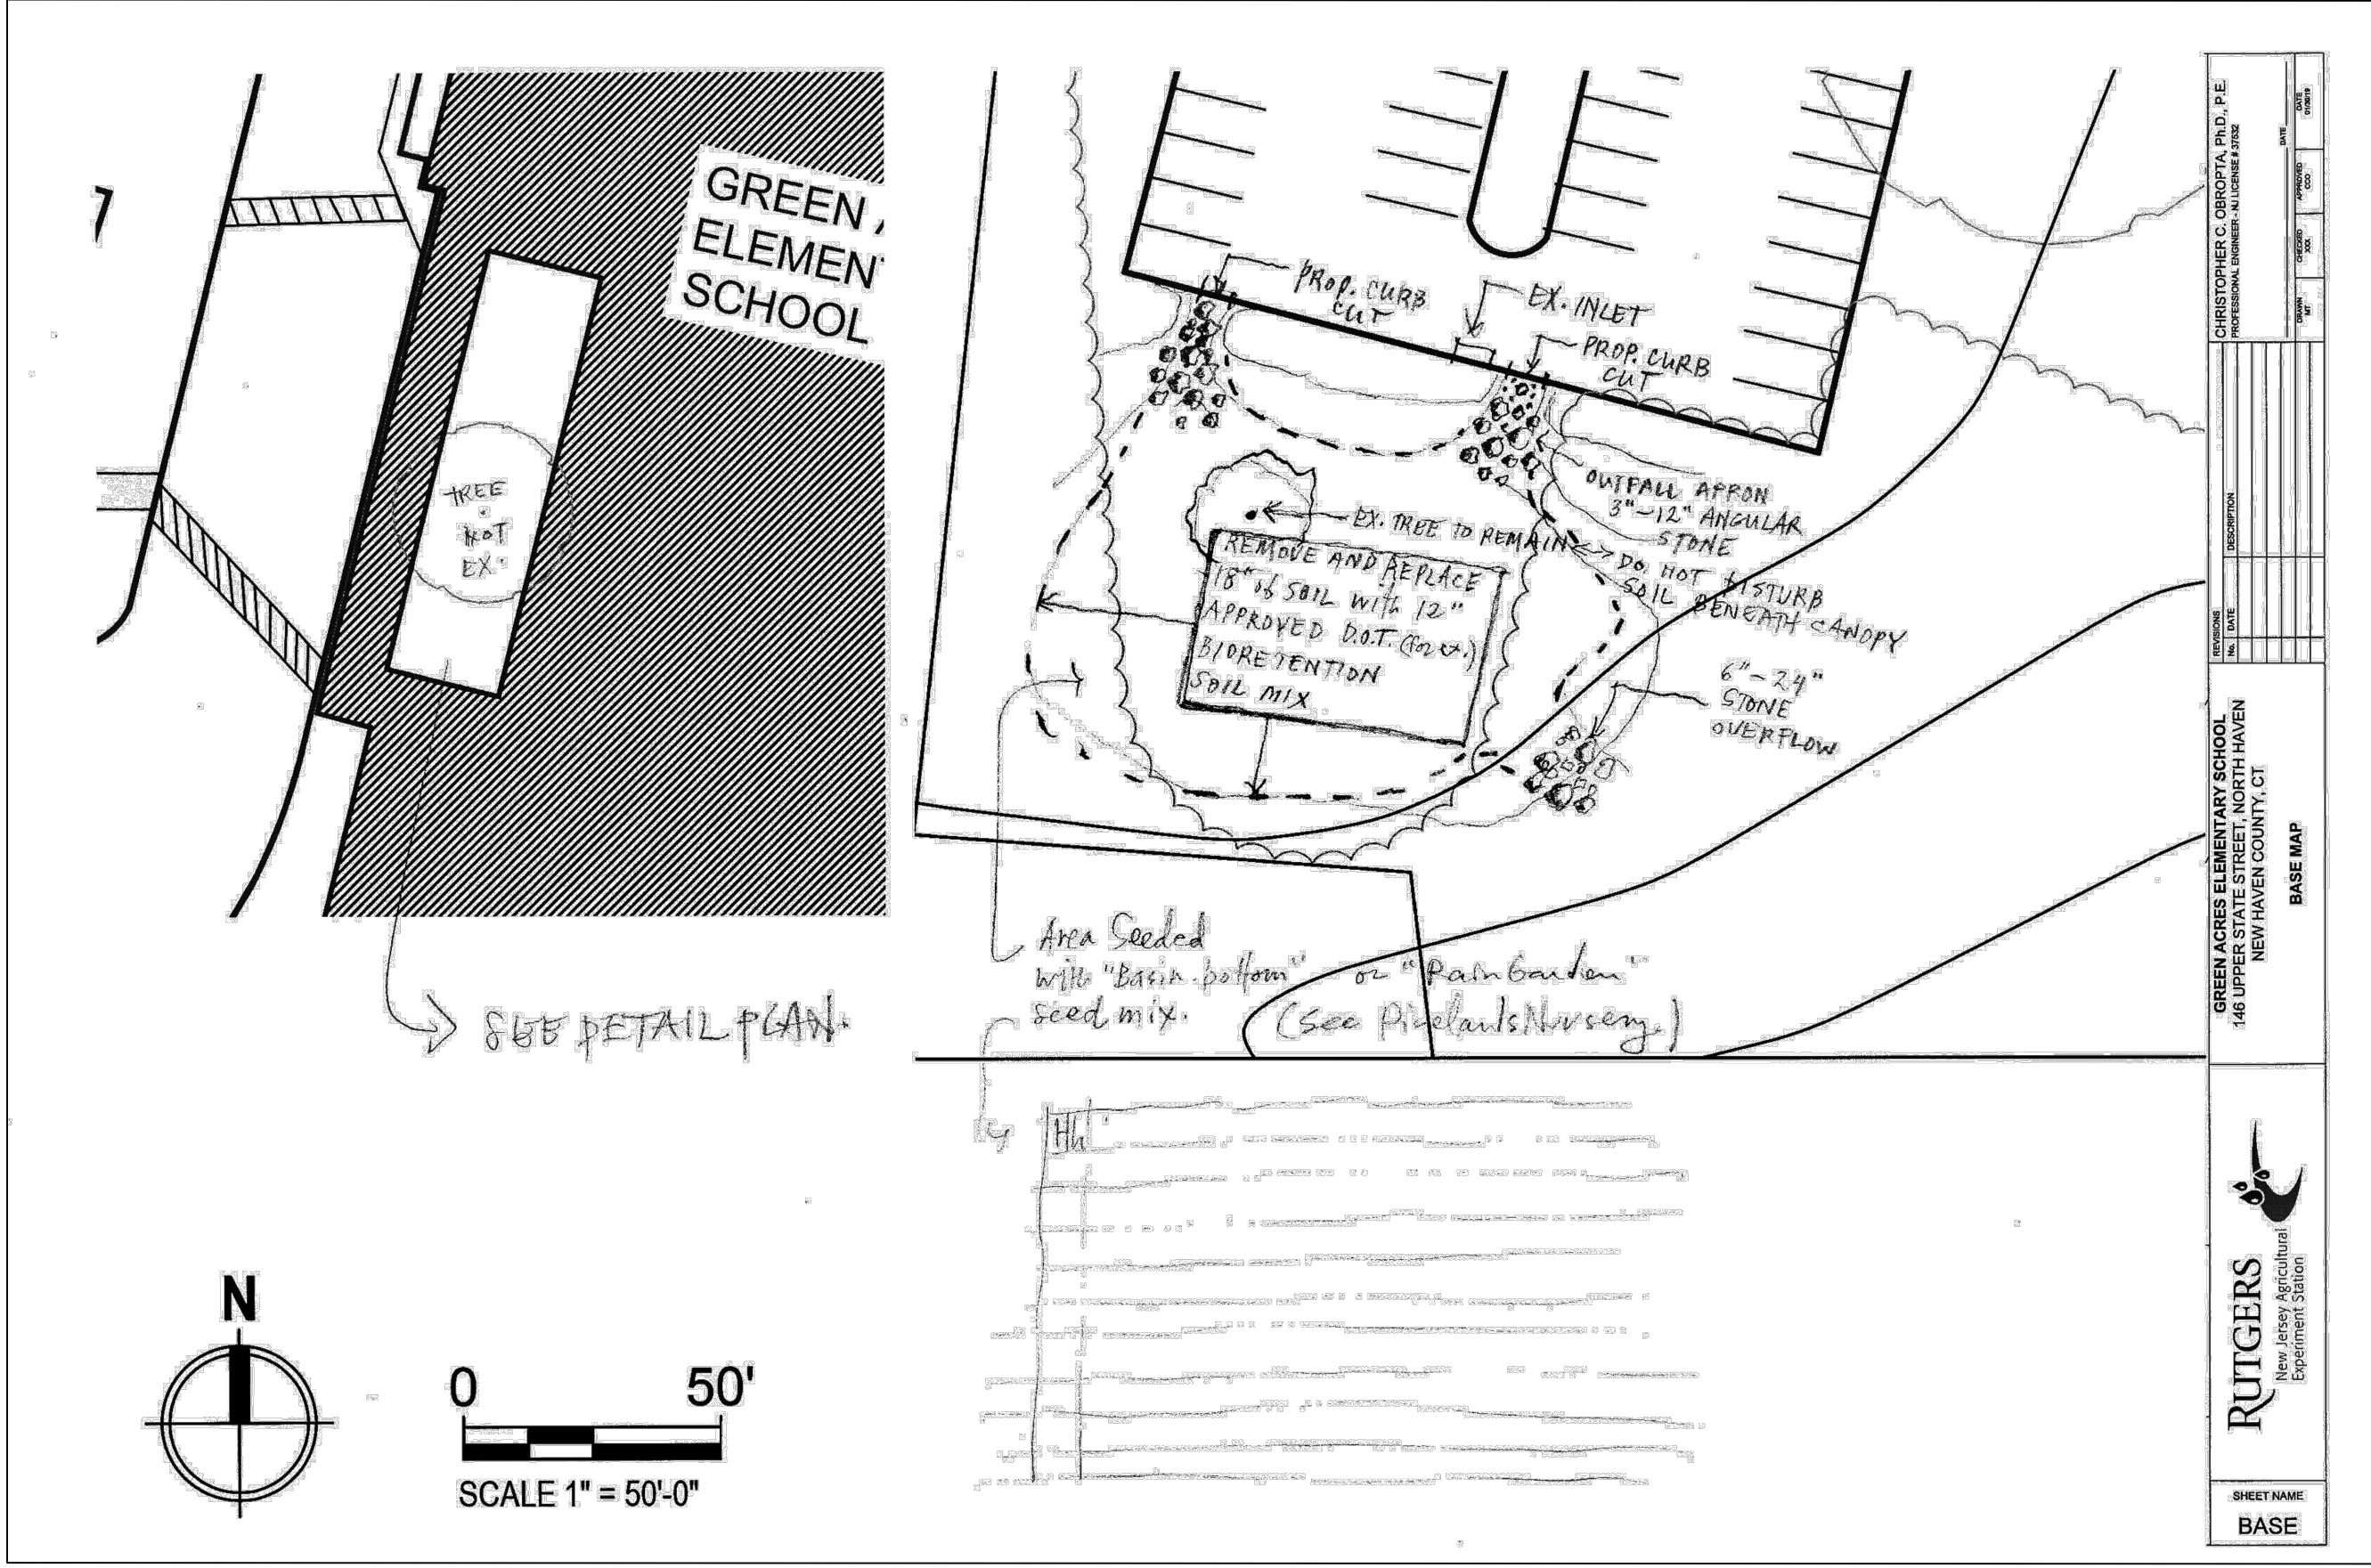 7
GREEN
ELEMEN
SCHOOL
TREE
NOT
EX.
SEE DETAIL PLAN.
PROP. CURB
CUT
EX. INLET
PROP. CURB
CUT
OUTFALL APRON
3"-12" ANGULAR
STONE
EX. TREE TO REMAIN
DO. NOT DISTURB
SOIL BENEATH CANOPY
REMOVE AND REPLACE
18" of SOIL WITH 12"
APPROVED D.O.T. (for ex.)
BIORETENTION
SOIL MIX
6"-24"
STONE
OVERFLOW
Area Seeded
with "Basin-bottom" or "Rain Garden"
seed mix. (See Pinelands Nursery.)
N
0 50'
SCALE 1" = 50'-0"
CHRISTOPHER C. OBROPTA, Ph.D., P.E.
PROFESSIONAL ENGINEER - NJ LICENSE # 37532
DATE
DRAWN
MT
CHECKED
XXX
APPROVED
CCO
DATE
REVISIONS
No. DATE DESCRIPTION
GREEN ACRES ELEMENTARY SCHOOL
146 UPPER STATE STREET, NORTH HAVEN
NEW HAVEN COUNTY, CT
BASE MAP
RUTGERS
New Jersey Agricultural
Experiment Station
SHEET NAME
BASE